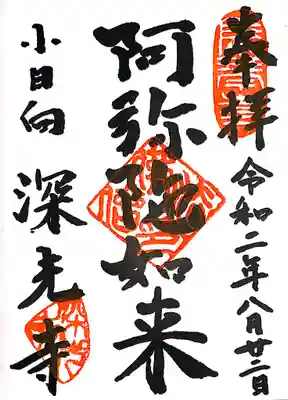 奉拝
令和二年八月廿二日
阿弥陀如来
小日向
深光寺